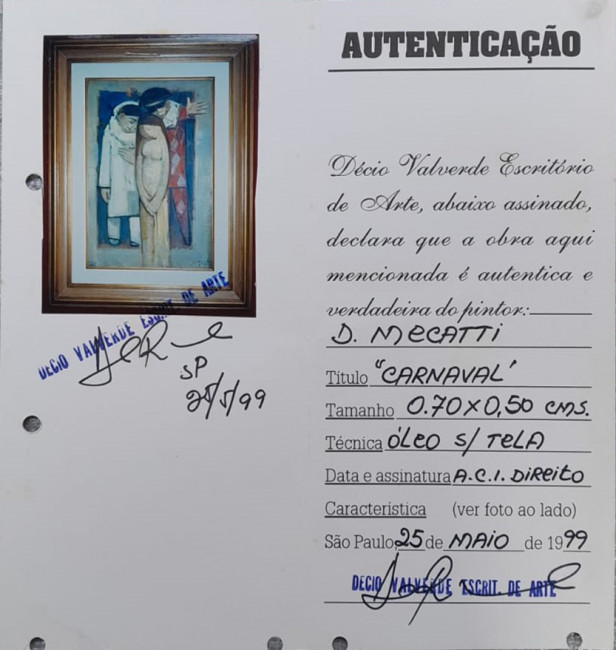 DECIO VALVERDE ESCRIT. DE ARTE
SP
25/5/99
AUTENTICAÇÃO
Décio Valverde Escritório
de Arte, abaixo assinado,
declara que a obra aqui
mencionada é autentica e
verdadeira do pintor:
D. MECATTI
Título "CARNAVAL"
Tamanho 0.70 X 0,50 CMS.
Técnica ÓLEO S/ TELA
Data e assinatura A.C.I. DIREITO
Característica (ver foto ao lado)
São Paulo, 25 de MAIO de 1999
DECIO VALVERDE ESCRIT. DE ARTE